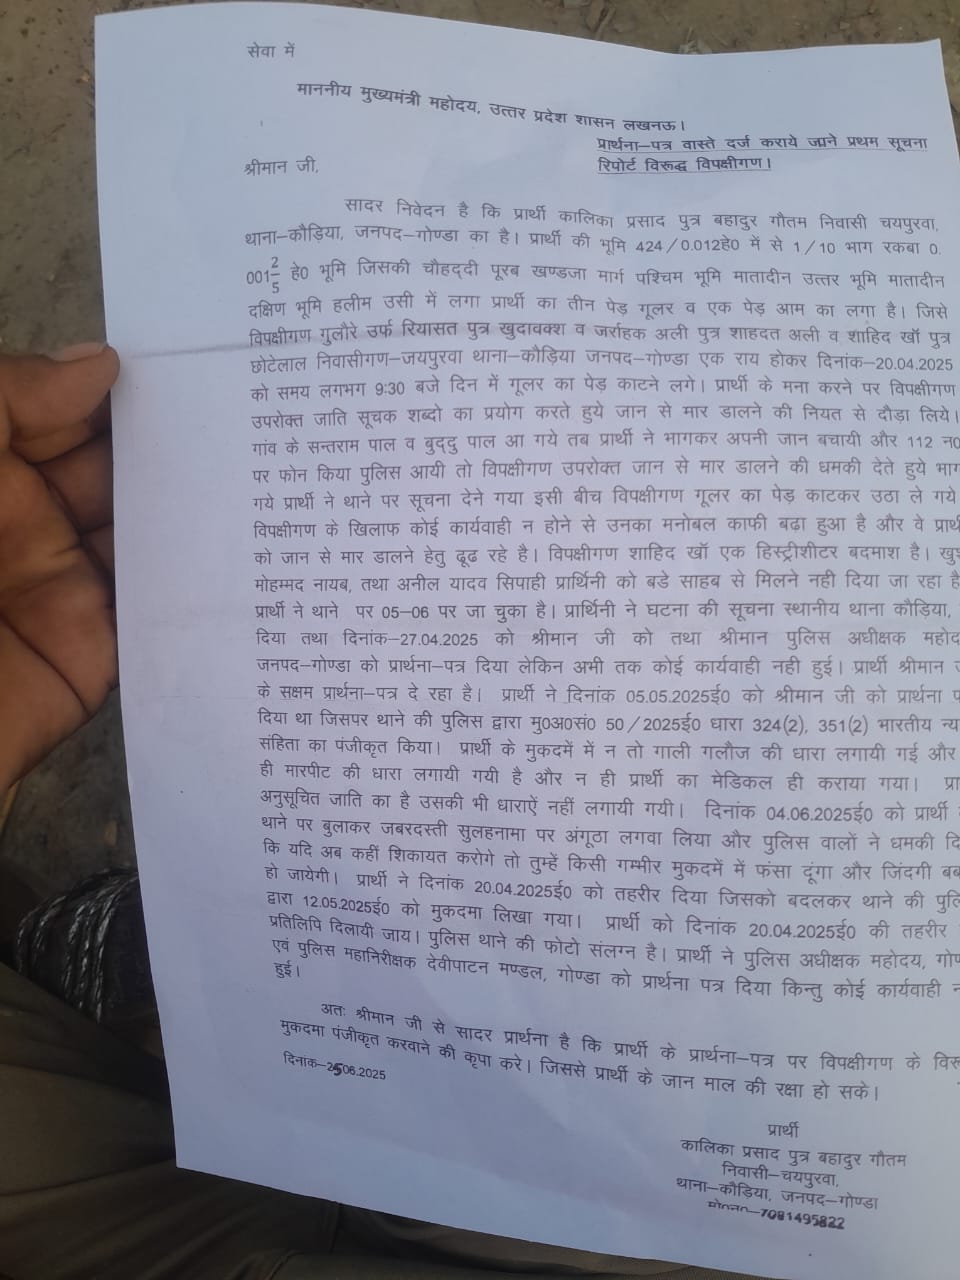 सेवा में
माननीय मुख्यमंत्री महोदय, उत्तर प्रदेश शासन लखनऊ।
प्रार्थना–पत्र वास्ते दर्ज कराये जाने प्रथम सूचना
रिपोर्ट विरूद्ध विपक्षीगण।
श्रीमान जी,
सादर निवेदन है कि प्रार्थी कालिका प्रसाद पुत्र बहादुर गौतम निवासी चयपुरवा,
थाना–कौड़िया, जनपद–गोण्डा का है। प्रार्थी की भूमि 424/0.012हे0 में से 1/10 भाग रकबा 0.
001 2/5 हे0 भूमि जिसकी चौहद्दी पूरब खण्डजा मार्ग पश्चिम भूमि मातादीन उत्तर भूमि मातादीन
दक्षिण भूमि हलीम उसी में लगा प्रार्थी का तीन पेड़ गूलर व एक पेड़ आम का लगा है। जिसे
विपक्षीगण गुलौरे उर्फ रियासत पुत्र खुदावक्श व जर्राहक अली पुत्र शाहदत अली व शाहिद खॉ पुत्र
छोटेलाल निवासीगण–जयपुरवा थाना–कौड़िया जनपद–गोण्डा एक राय होकर दिनांक–20.04.2025
को समय लगभग 9:30 बजे दिन में गूलर का पेड़ काटने लगे। प्रार्थी के मना करने पर विपक्षीगण
उपरोक्त जाति सूचक शब्दो का प्रयोग करते हुये जान से मार डालने की नियत से दौड़ा लिये।
गांव के सन्तराम पाल व बुद्दु पाल आ गये तब प्रार्थी ने भागकर अपनी जान बचायी और 112 न0
पर फोन किया पुलिस आयी तो विपक्षीगण उपरोक्त जान से मार डालने की धमकी देते हुये भाग
गये प्रार्थी ने थाने पर सूचना देने गया इसी बीच विपक्षीगण गूलर का पेड़ काटकर उठा ले गये
विपक्षीगण के खिलाफ कोई कार्यवाही न होने से उनका मनोबल काफी बढा हुआ है और वे प्रार्थी
को जान से मार डालने हेतु ढूढ रहे है। विपक्षीगण शाहिद खॉ एक हिस्ट्रीशीटर बदमाश है।
मोहम्मद नायब, तथा अनील यादव सिपाही प्रार्थिनी को बडे साहब से मिलने नही दिया जा रहा है
प्रार्थी ने थाने पर 05–06 पर जा चुका है। प्रार्थिनी ने घटना की सूचना स्थानीय थाना कौड़िया,
दिया तथा दिनांक–27.04.2025 को श्रीमान जी को तथा श्रीमान पुलिस अधीक्षक महोद
जनपद–गोण्डा को प्रार्थना–पत्र दिया लेकिन अभी तक कोई कार्यवाही नही हुई। प्रार्थी श्रीमान
के सक्षम प्रार्थना–पत्र दे रहा है। प्रार्थी ने दिनांक 05.05.2025ई0 को श्रीमान जी को प्रार्थना
दिया था जिसपर थाने की पुलिस द्वारा मु0अ0सं0 50/2025ई0 धारा 324(2), 351(2) भारतीय न्य
संहिता का पंजीकृत किया। प्रार्थी के मुकदमें में न तो गाली गलौज की धारा लगायी गई और
ही मारपीट की धारा लगायी गयी है और न ही प्रार्थी का मेडिकल ही कराया गया। प्रा
अनुसूचित जाति का है उसकी भी धाराऐं नहीं लगायी गयी। दिनांक 04.06.2025ई0 को प्रार्थी
थाने पर बुलाकर जबरदस्ती सुलहनामा पर अंगूठा लगवा लिया और पुलिस वालों ने धमकी दि
कि यदि अब कहीं शिकायत करोगे तो तुम्हें किसी गम्भीर मुकदमें में फंसा दूंगा और जिंदगी बब
हो जायेगी। प्रार्थी ने दिनांक 20.04.2025ई0 को तहरीर दिया जिसको बदलकर थाने की पुलि
द्वारा 12.05.2025ई0 को मुकदमा लिखा गया। प्रार्थी को दिनांक 20.04.2025ई0 की तहरीर
प्रतिलिपि दिलायी जाय। पुलिस थाने की फोटो संलग्न है। प्रार्थी ने पुलिस अधीक्षक महोदय, गोण
एवं पुलिस महानिरीक्षक देवीपाटन मण्डल, गोण्डा को प्रार्थना पत्र दिया किन्तु कोई कार्यवाही न
हुई।
अतः श्रीमान जी से सादर प्रार्थना है कि प्रार्थी के प्रार्थना–पत्र पर विपक्षीगण के विरू
मुकदमा पंजीकृत करवाने की कृपा करे। जिससे प्रार्थी के जान माल की रक्षा हो सके।
दिनांक–25.06.2025
प्रार्थी
कालिका प्रसाद पुत्र बहादुर गौतम
निवासी–चयपुरवा,
थाना–कौड़िया, जनपद–गोण्डा
मो0न0–7081495822